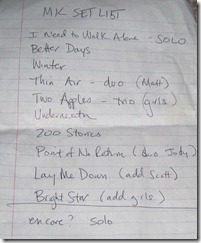 MK SET LIST
I Need to Walk Alone - SOLO
Better Days
Winter
Thin Air - duo (Matt)
Two Apples - trio (girls)
200 Stories
Point of No Return (duo Jody)
Lay Me Down (add Scott)
Bright Star (add girls)
encore? Solo